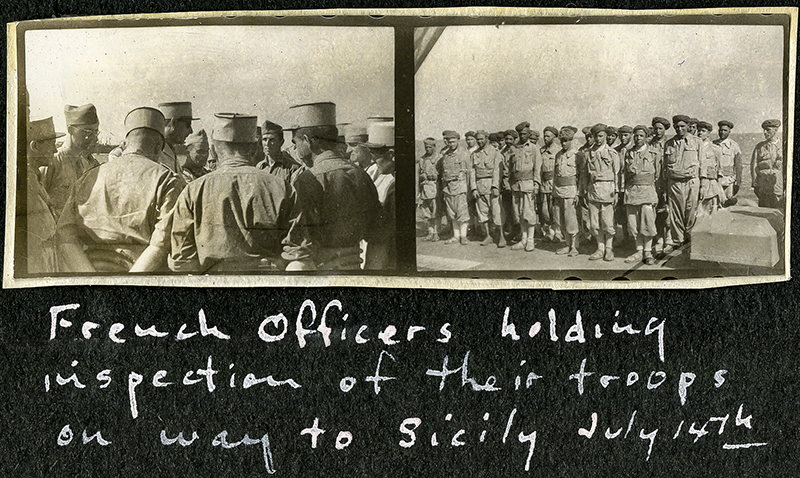 French Officers holding
inspection of their troops
on way to Sicily July 14th